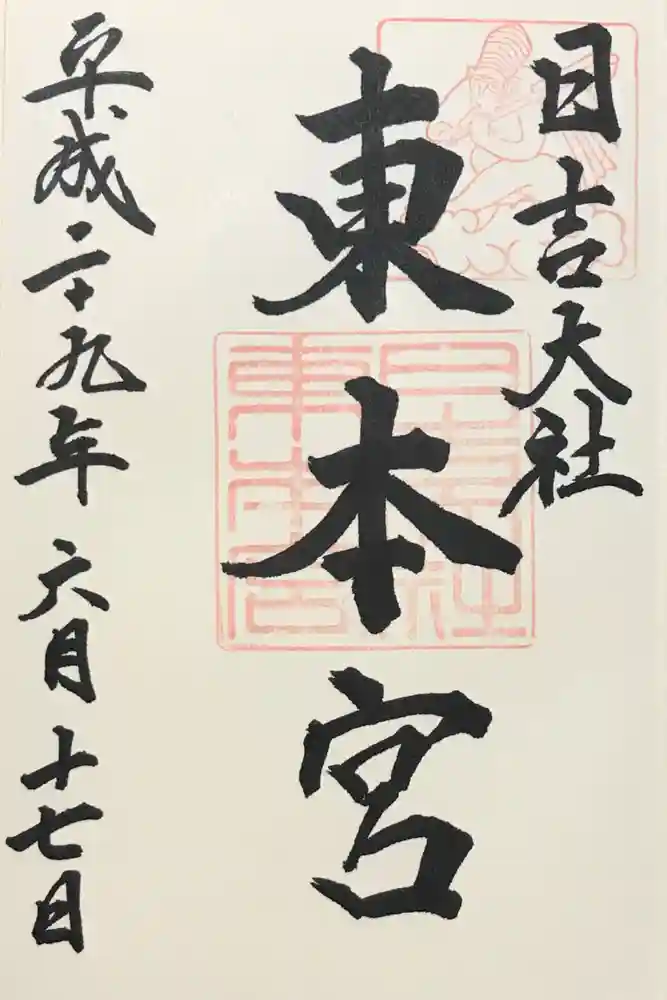 日吉大社
東本宮
平成二十九年 六月十七日
日吉大社
東本宮